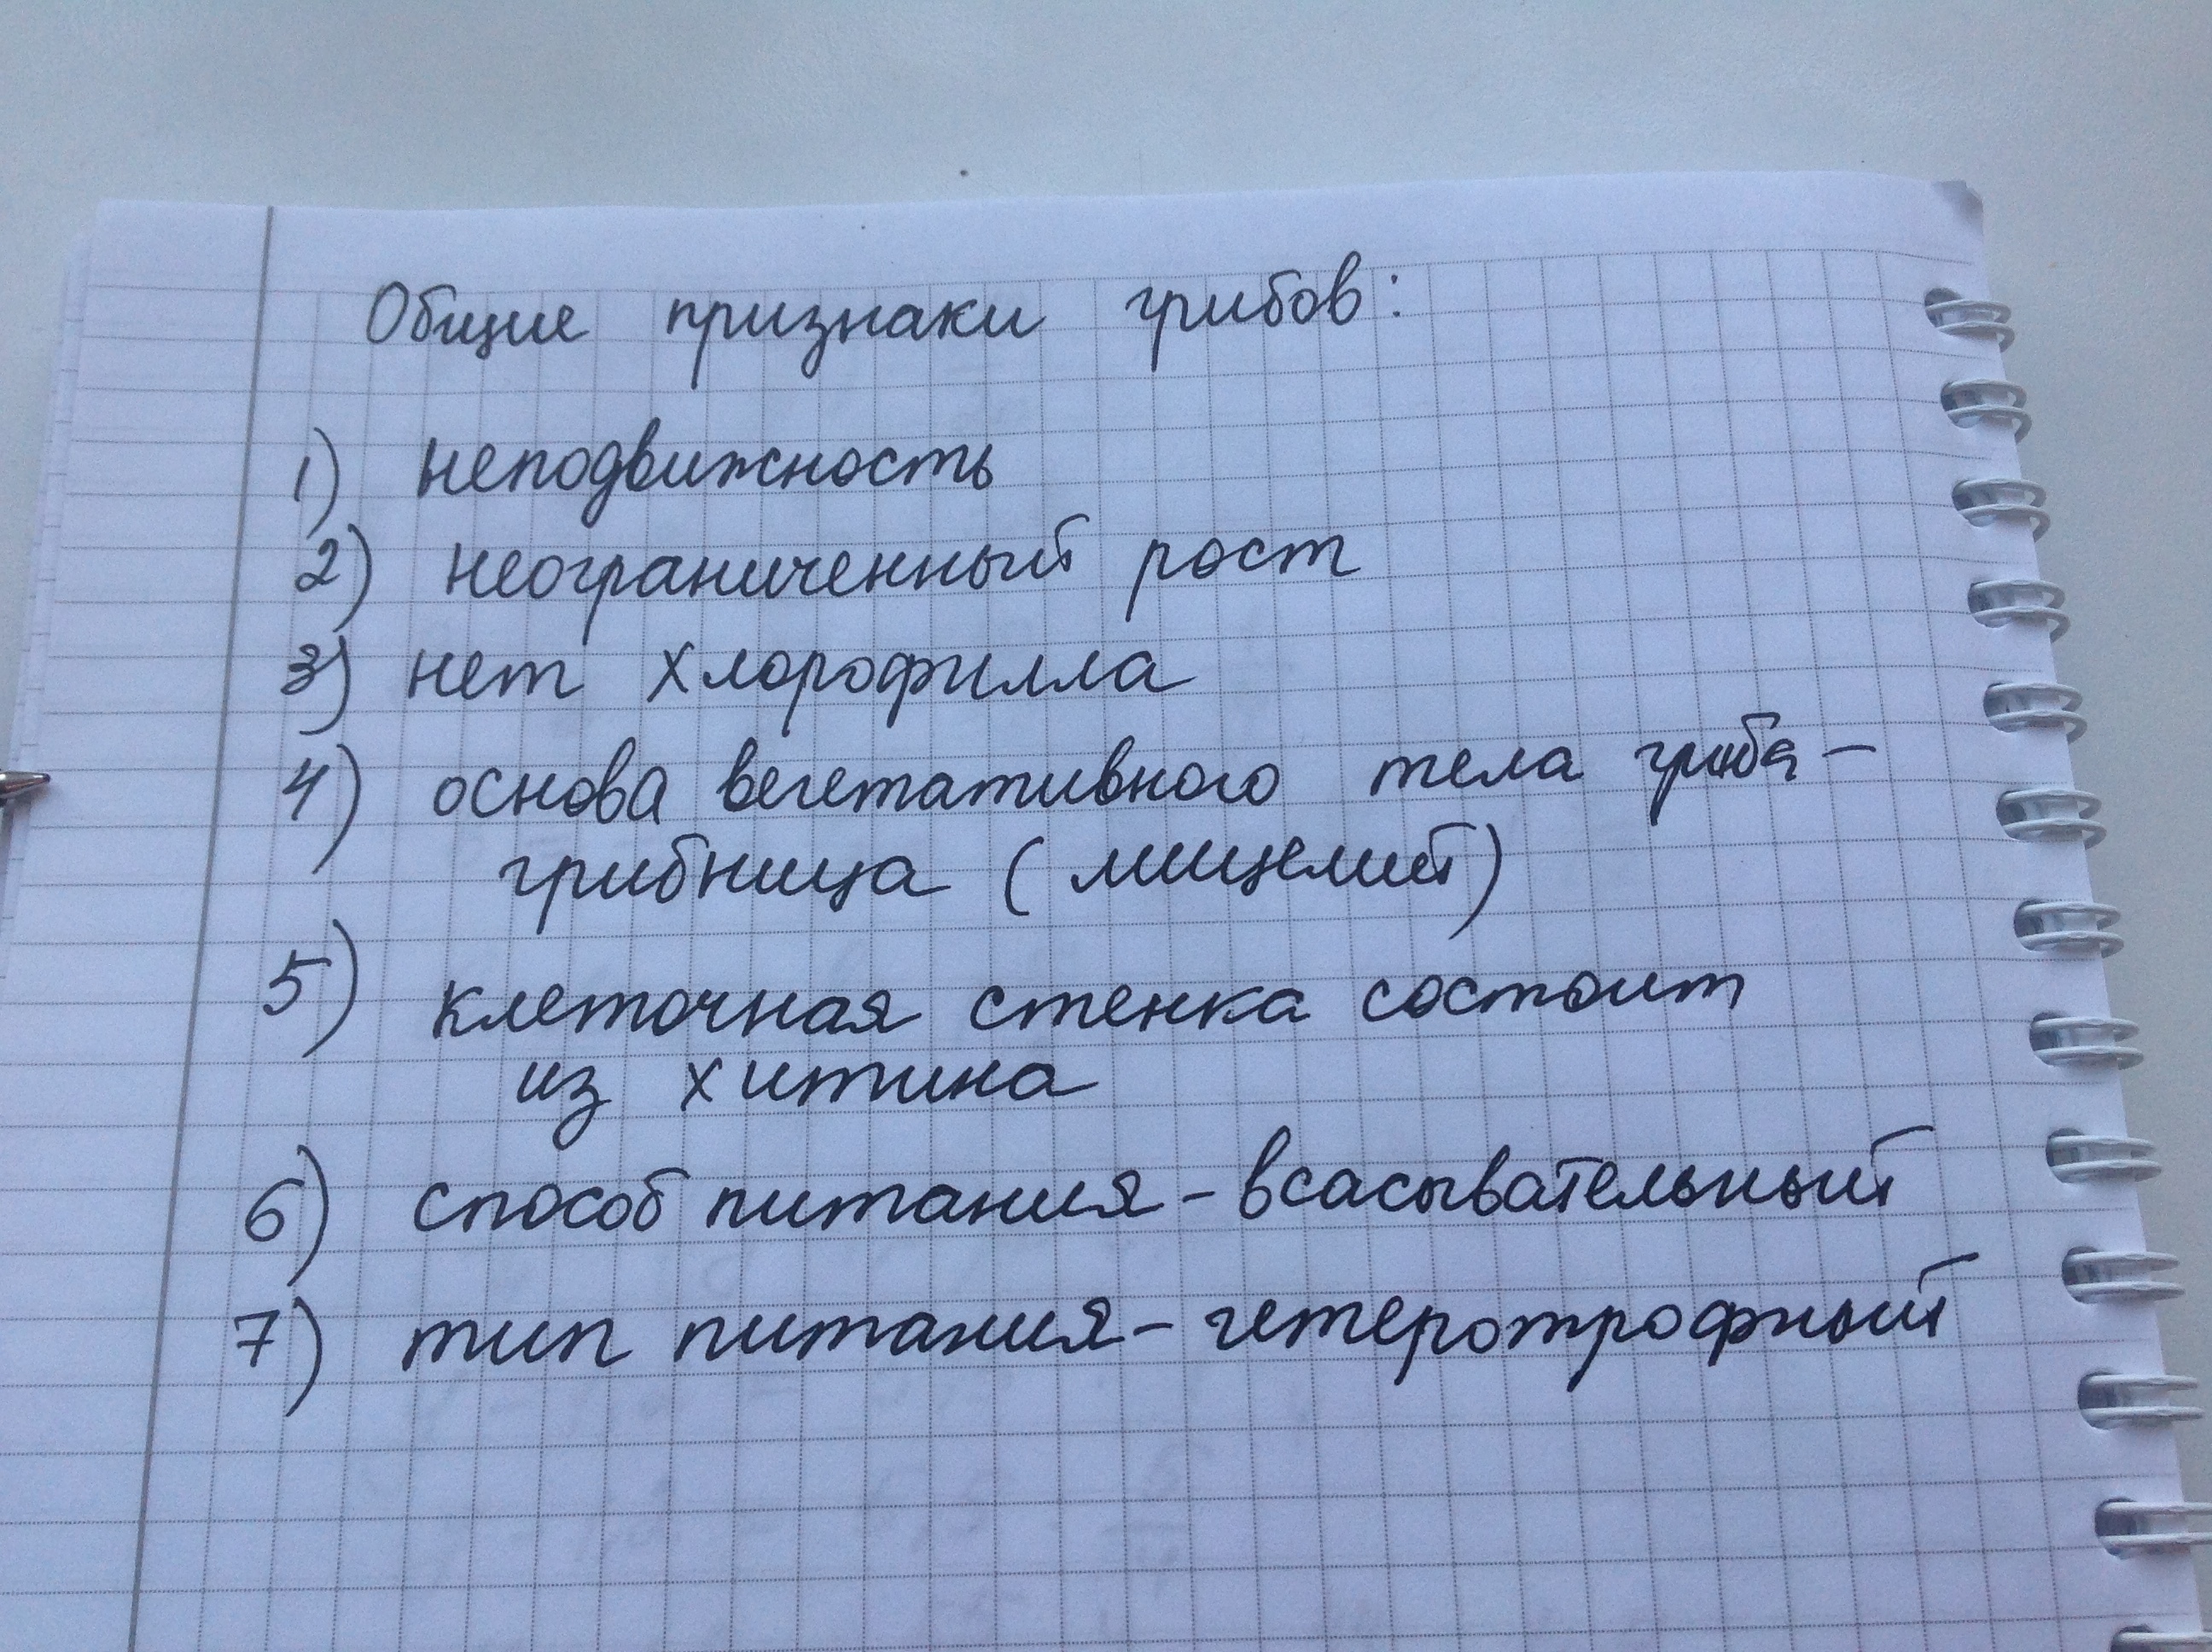 Общие признаки грибов:
1) неподвижность
2) неограниченный рост
3) нет хлорофилла
4) основа вегетативного тела гриба –
грибница (мицелий)
5) клеточная стенка состоит
из хитина
6) способ питания – всасывательный
7) тип питания – гетеротрофный